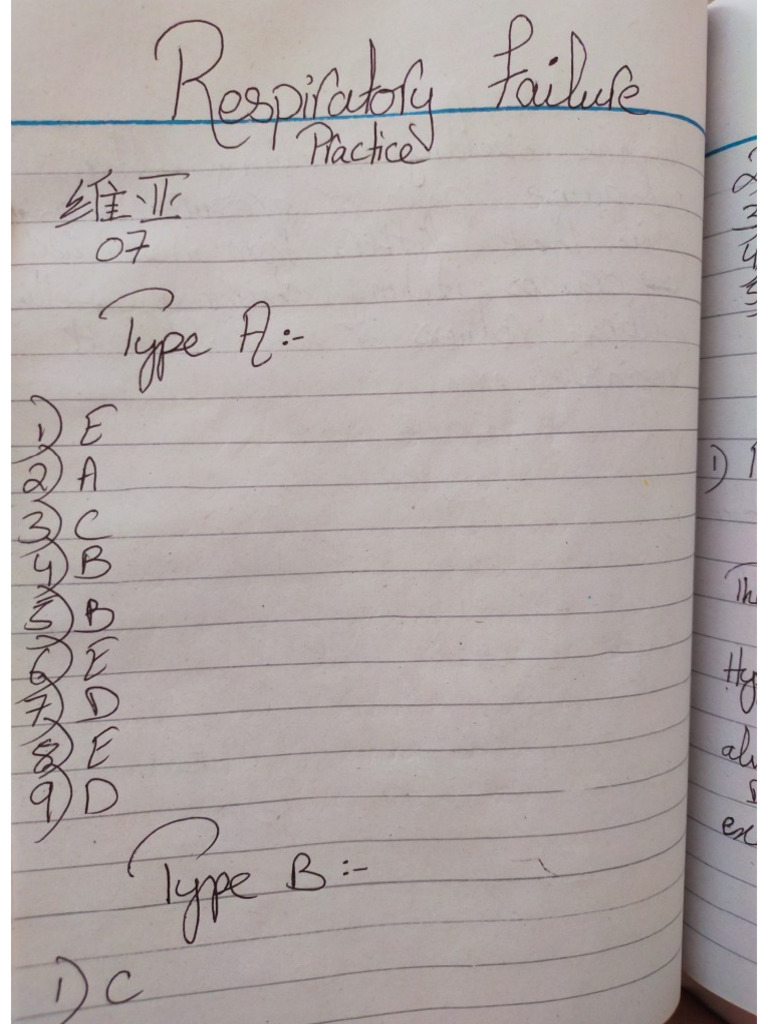 Respiratory Failure
Practice
维亚
07
Type A:-
1) E
2) A
3) C
4) B
5) B
6) E
7) D
8) E
9) D
Type B:-
1) C
2
3
4
5
1)